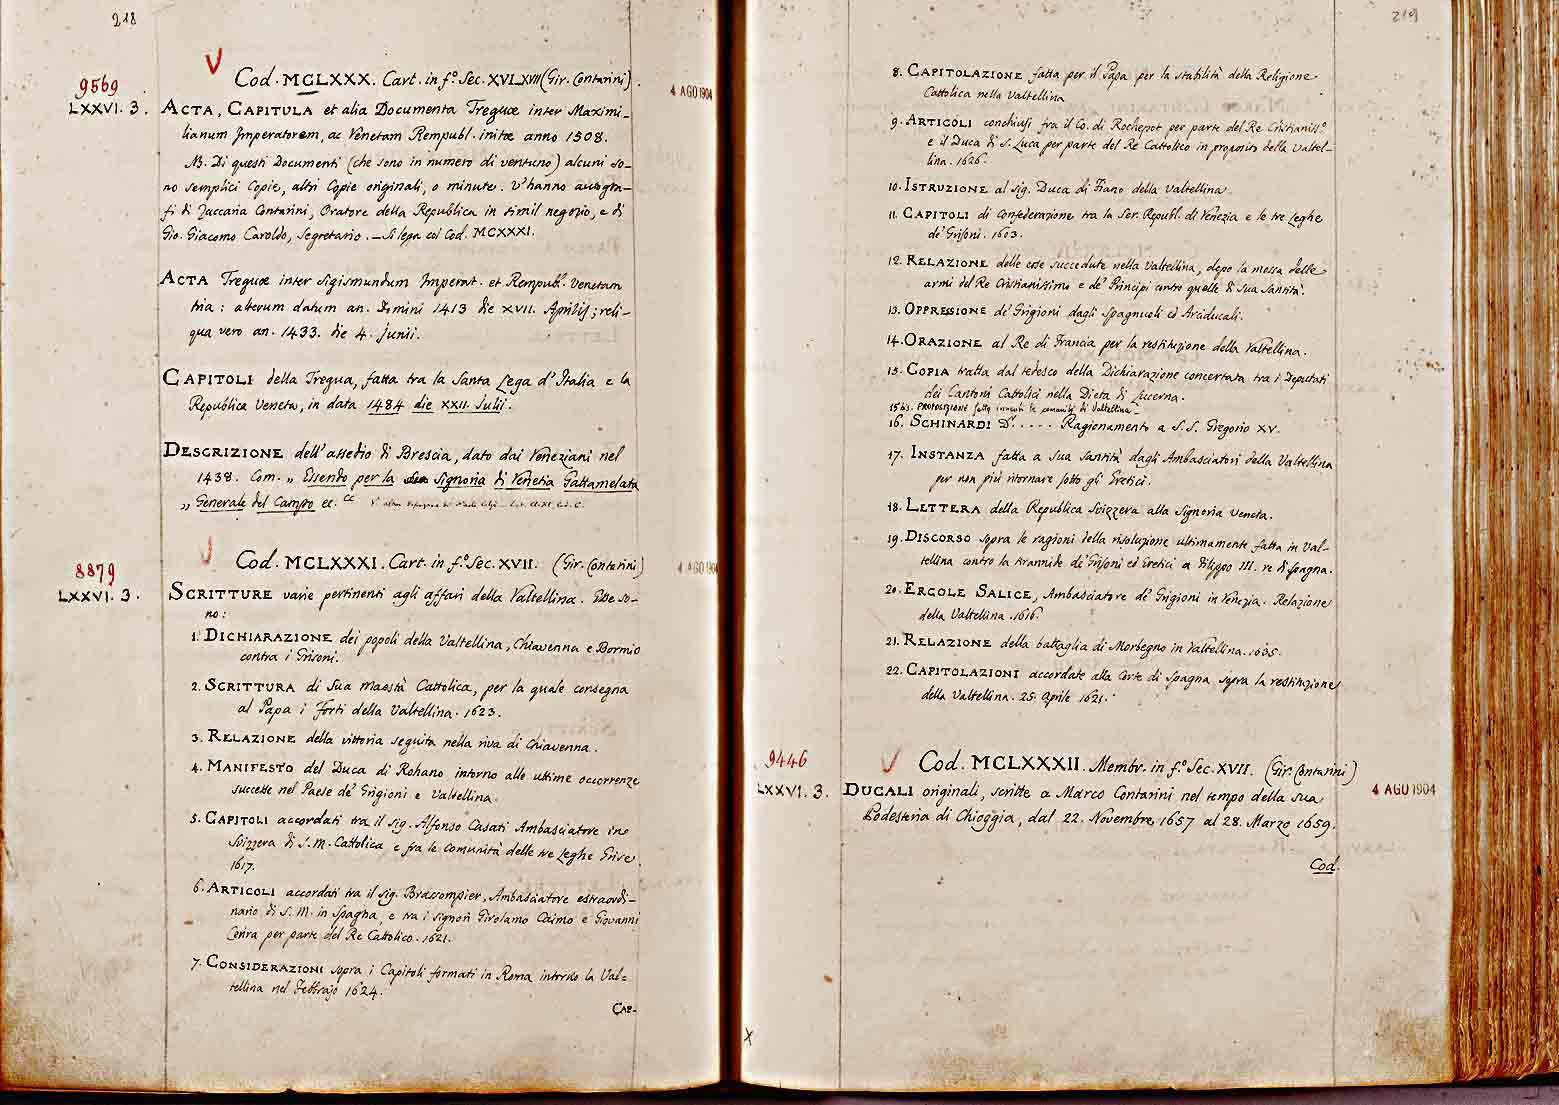 218
9569
LXXVI. 3.
Cod. MCLXXX. Cart. in f.º Sec. XVI.XVII (Gir. Contarini).
4 AGO 1904
ACTA, CAPITULA et alia Documenta Treguæ inter Maximi-
lianum Imperatorem, ac Venetam Rempubl. initæ anno 1508.
NB. Di questi Documenti (che sono in numero di ventuno) alcuni so-
no semplici Copie, altri Copie originali, o minute. V'hanno autogra-
fi di Zaccaria Contarini, Oratore della Republica in simil negozio, e di
Gio. Giacomo Caroldo, Segretario. — Si lega col Cod. MCXXXI.
ACTA Treguæ inter Sigismundum Imperat. et Rempubl. Venetam
tria: alterum datum an. Domini 1413 die XVII. Aprilis; reli-
qua vero an. 1433. die 4. Junii.
CAPITOLI della Tregua, fatta tra la Santa Lega d'Italia e la
Republica Veneta, in data 1484 die XXII. Julii.
DESCRIZIONE dell'assedio di Brescia, dato dai Veneziani nel
1438. Com. „ Essendo per la Signoria di Venetia Gattamelata
„ Generale del Campo ec. ce
8879
LXXVI. 3.
Cod. MCLXXXI. Cart. in f.º Sec. XVII. (Gir. Contarini)
4 AGO 1904
SCRITTURE varie pertinenti agli affari della Valtellina. Esse so-
no:
1. DICHIARAZIONE dei popoli della Valtellina, Chiavenna e Bormio
contra i Grisoni.
2. SCRITTURA di Sua Maestà Cattolica, per la quale consegna
al Papa i Forti della Valtellina. 1623.
3. RELAZIONE della vittoria seguita nella riva di Chiavenna.
4. MANIFESTO del Duca di Rohano intorno alle ultime occorrenze
successe nel Paese de' Grigioni e Valtellina.
5. CAPITOLI accordati tra il Sig. Alfonso Casati Ambasciatore in
Spizzera di S. M. Cattolica e fra le Comunità delle tre Leghe Grise.
1617.
6. ARTICOLI accordati tra il Sig. Brassompier, Ambasciatore estraordi-
nario di S. M. in Spagna, e tra i Signori Girolamo Caimo e Giovanni
Cerira per parte del Re Cattolico. 1621.
7. CONSIDERAZIONI sopra i Capitoli formati in Roma intorno la Val-
tellina nel Febbrajo 1624.
CAP-
219
8. CAPITOLAZIONE fatta per il Papa per la stabilità della Religione
Cattolica nella Valtellina
9. ARTICOLI conchiusi fra il Co. di Rochepot per parte del Re Cristianiss.º
e il Duca di S. Luca per parte del Re Cattolico in proposito della Valtel-
lina. 1626.
10. ISTRUZIONE al Sig. Duca di Fiano della Valtellina
11. CAPITOLI di Confederazione tra la Ser. Republ. di Venezia e le tre Leghe
de' Grisoni. 1603.
12. RELAZIONE delle cose succedute nella Valtellina, dopo la mossa delle
armi del Re Cristianissimo e de' Principi contro quelle di Sua Santità.
13. OPPRESSIONE de' Grigioni dagli Spagnuoli ed Arciducali.
14. ORAZIONE al Re di Francia per la restituzione della Valtellina.
15. COPIA tratta dal tedesco della Dichiarazione concertata tra i Deputati
dei Cantoni Cattolici nella Dieta di Lucerna.
15 bis. PROPOSIZIONE fatta innanti le comunità di Valtellina.
16. SCHINARDI D.r . . . . Ragionamento a S. S. Gregorio XV.
17. INSTANZA fatta a Sua Santità dagli Ambasciatori della Valtellina
per non più ritornare sotto gli Eretici.
18. LETTERA della Republica Svizzera alla Signoria Veneta.
19. DISCORSO sopra le ragioni della risoluzione ultimamente fatta in Val-
tellina contro la tirannide de' Grisoni ed Eretici a Filippo III. re di Spagna.
20. ERCOLE SALICE, Ambasciatore de' Grigioni in Venezia. Relazione
della Valtellina. 1616.
21. RELAZIONE della battaglia di Morbegno in Valtellina. 1635.
22. CAPITOLAZIONI accordate alla Corte di Spagna sopra la restituzione
della Valtellina. 25. Aprile 1621.
9446
LXXVI. 3.
Cod. MCLXXXII. Membr. in f.º Sec. XVII. (Gir. Contarini)
4 AGO 1904
DUCALI originali, scritte a Marco Contarini nel tempo della sua
Podesteria di Chioggia, dal 22. Novembre, 1657 al 28. Marzo 1659.
Cod.
X